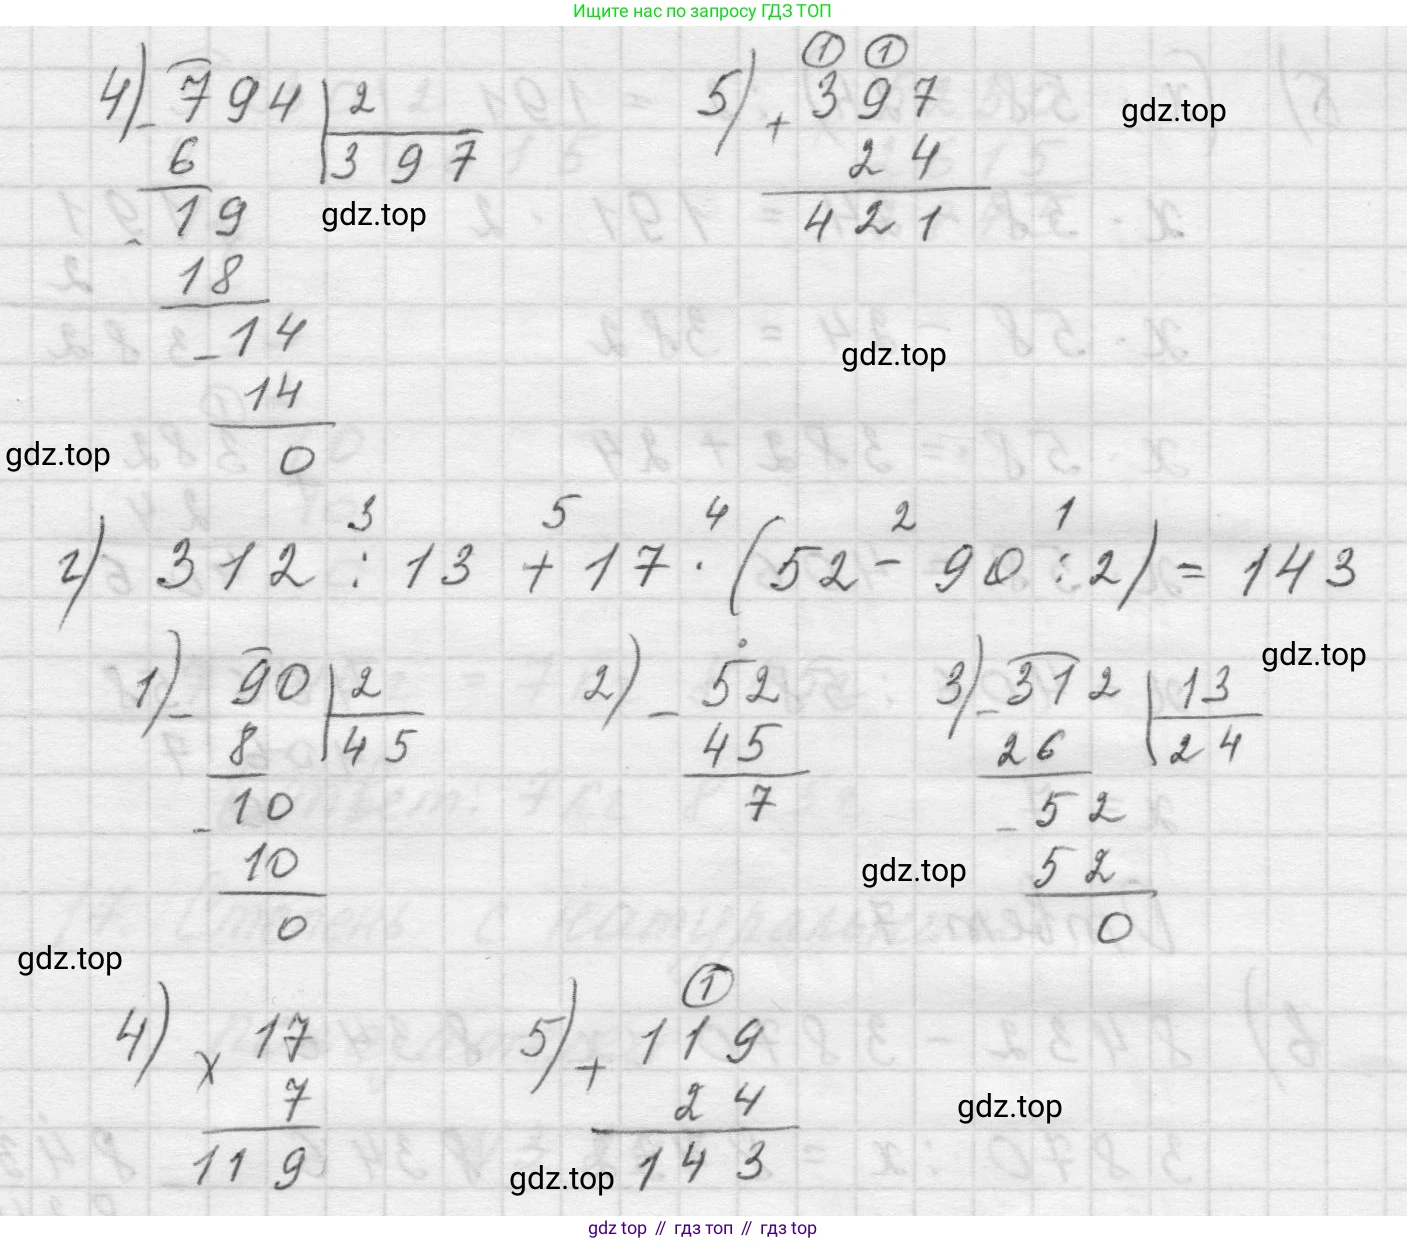 Ищите нас по запросу ГДЗ ТОП
4) - 794 | 2
6
397
19
- 18
- 14
14
0
5) + 397
1 1
24
421
gdz.top
gdz.top
gdz.top
gdz.top
3 5 4 2 1
г) 312 : 13 + 17 · (52 - 90 : 2) = 143
1) - 90 | 2
8
45
- 10
10
0
2) - 52
45
7
3) - 312 | 13
26
24
- 52
52
0
gdz.top
gdz.top
gdz.top
4) × 17
7
119
5) + 119
1
24
143
gdz.top
gdz.top
gdz top // гдз топ // гдз top